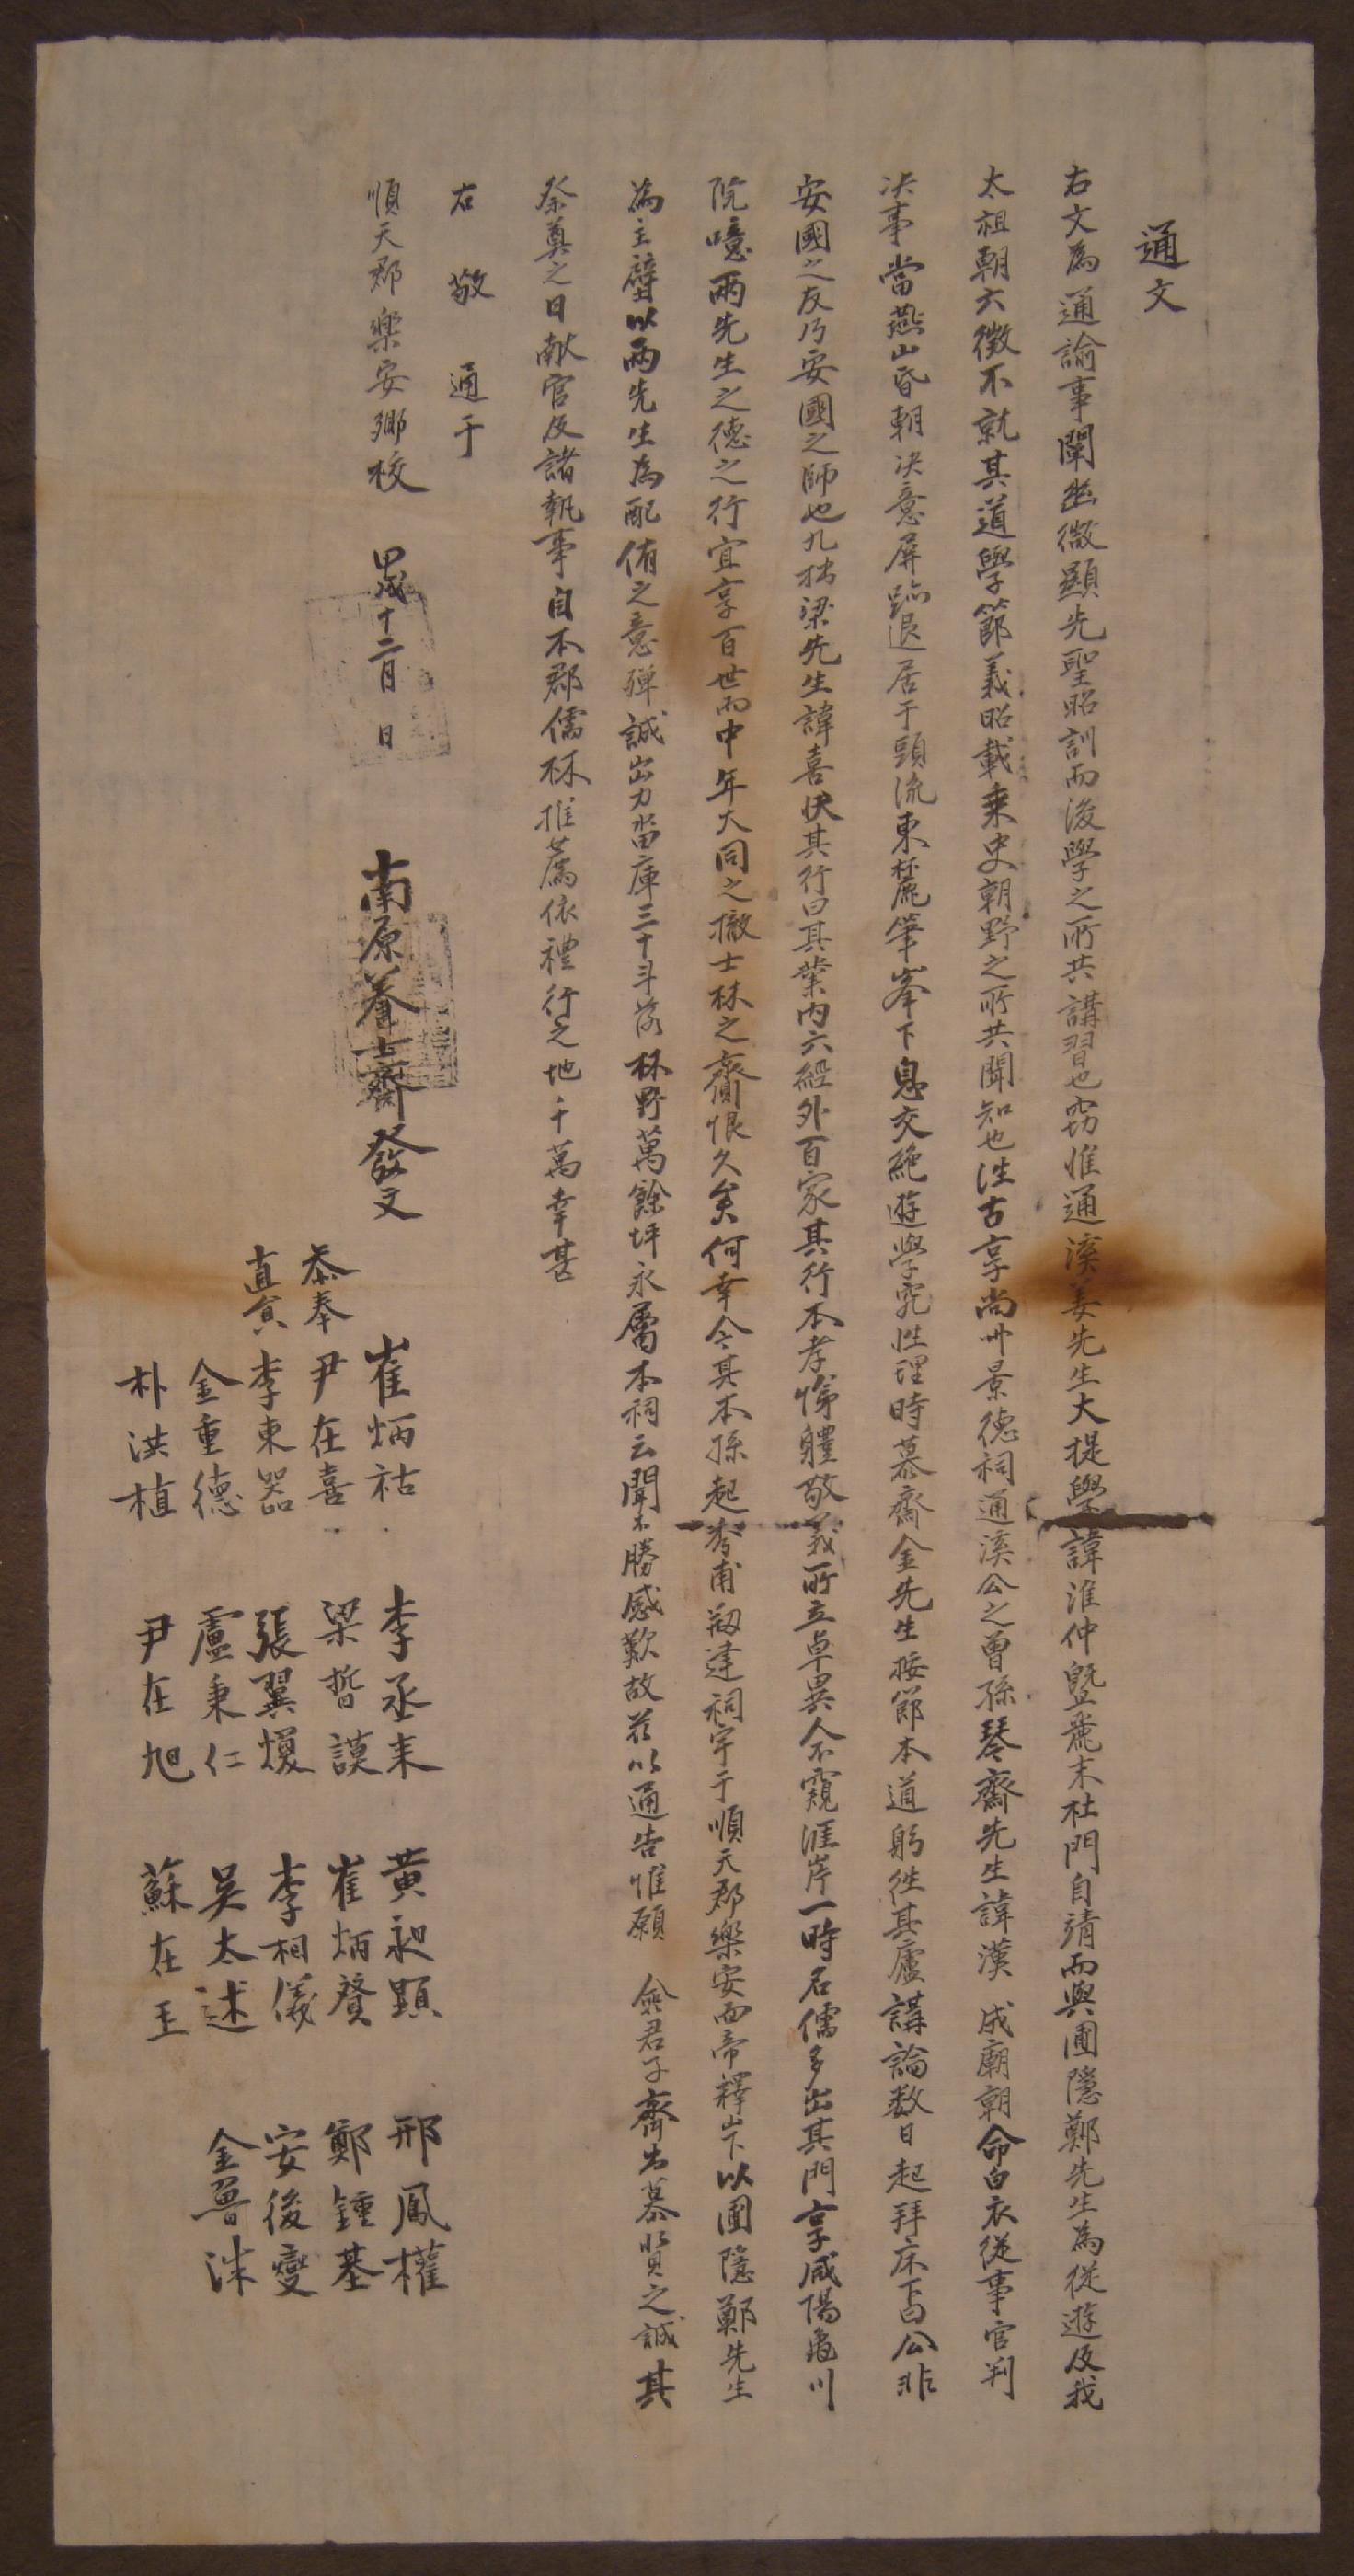 通文
右文為通諭事闡幽微顯先聖昭訓而後學之所共講習也窃惟通溪姜先生大提學諱淮仲曁麗末杜門自靖而與圃隱鄭先生為從遊及我
太祖朝六徵不就其道學節義昭載乘史朝野之所共聞知也往古享尚州景德祠通溪公之曾孫琴齋先生諱漢 成廟朝命白衣從事官判
决事當燕山昏朝决意屏跡退居于頭流東麓筆峯下息交絶遊學究性理時慕齋金先生按節本道躬徃其廬講論数日起拜床下曰公非
安國之友乃安國之師也九拙梁先生諱喜伏其行曰其業內六經外百家其行本孝悌軆敬義所立卓異人不窺涯岸一時名儒多出其門享咸陽龜川
院噫兩先生之德之行宜享百世而中年大同之撤士林之齎恨久矣何幸今其本孫起秀甫刱建祠宇于順天郡樂安面帝釋山下以圃隱鄭先生
為主壁以兩先生為配侑之意殫誠出力畓庫三十斗落林野萬餘坪永屬本祠云聞不勝感歎故玆以通告惟願 僉君子齊出慕賢之誠其
祭奠之日献官及諸執事自本郡儒林推薦依禮行之地千萬幸甚
右 敬 通于
順天郡樂安鄕校 甲戌十二月 日 南原養士齋發文
崔炳祜 李丞耒 黄昶顯 邢鳳權
恭奉 尹在喜 梁晢謨 崔炳賛 鄭鍾基
直員 李東器 張翼煖 李相儀 安後燮
金重德 盧秉仁 吴太述 金魯洙
朴洪植 尹在旭 蘇在玉